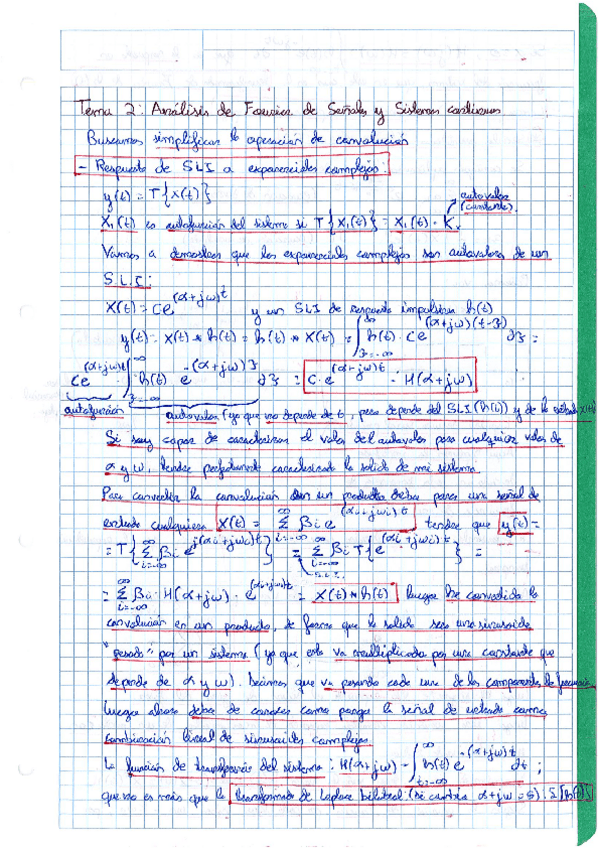 Tema 2: Análisis de Fourier de Señales y Sistemas continuos
Buscamos simplificar la operación de convolución
- Respuesta de SLI a exponenciales complejas:
y(t) = T{x(t)}
autovalor
(constante).
X₁(t) es autofunción del sistema si T{X₁(t)} = X₁(t)·K.
Vamos a demostrar que las exponenciales complejas son autovalores de un
S.L.I:
X(t) = C e^(α+jω)t y un SLI de respuesta impulsiva h(t)
y(t) = X(t) * h(t) = h(t) * X(t) = ∫_{ζ=-∞}^{∞} h(ζ) · C e^(α+jω)(t-ζ) dζ =
C e^(α+jω)t ∫_{ζ=-∞}^{∞} h(ζ) e^-(α+jω)ζ dζ = C · e^(α+jω)t · H(α+jω)
autofunción autovalor (ya que no depende de t, pero depende del SLI (h(t)) y de la entrada x(t))
Si soy capaz de caracterizar el valor del autovalor para cualquier valor de
α y ω, tendré perfectamente caracterizado la salida de mi sistema
Para convertir la convolución en un producto debo poner una señal de
entrada cualquiera X(t) = Σ_{i=-∞}^{∞} βi e^(αi+jωi)t tendré que y(t) =
= T{Σ_{i=-∞}^{∞} βi e^(αi+jωi)t} = Σ_{i=-∞}^{∞} βi T{e^(αi+jωi)t} =
S.L.I.
= Σ_{i=-∞}^{∞} βi · H(α+jω) · e^(αi+jωi)t = X(t) * h(t) luego he convertido la
convolución en un producto, de forma que la salida sera una sinusoide
"pesada" por un sistema (ya que esta va multiplicada por una constante que
depende de α y ω). Decimos que va pesando cada una de las componentes de frecuencia
Luego ahora debo de conocer como pongo la señal de entrada como
combinación lineal de sinusoides complejas
La función de transferencia del sistema: H(α+jω) = ∫_{t=-∞}^{∞} h(t) e^-(α+jω)t dt ;
que no es más que la transformada de Laplace bilateral (si cambia α+jω = s) : L[h(t)]